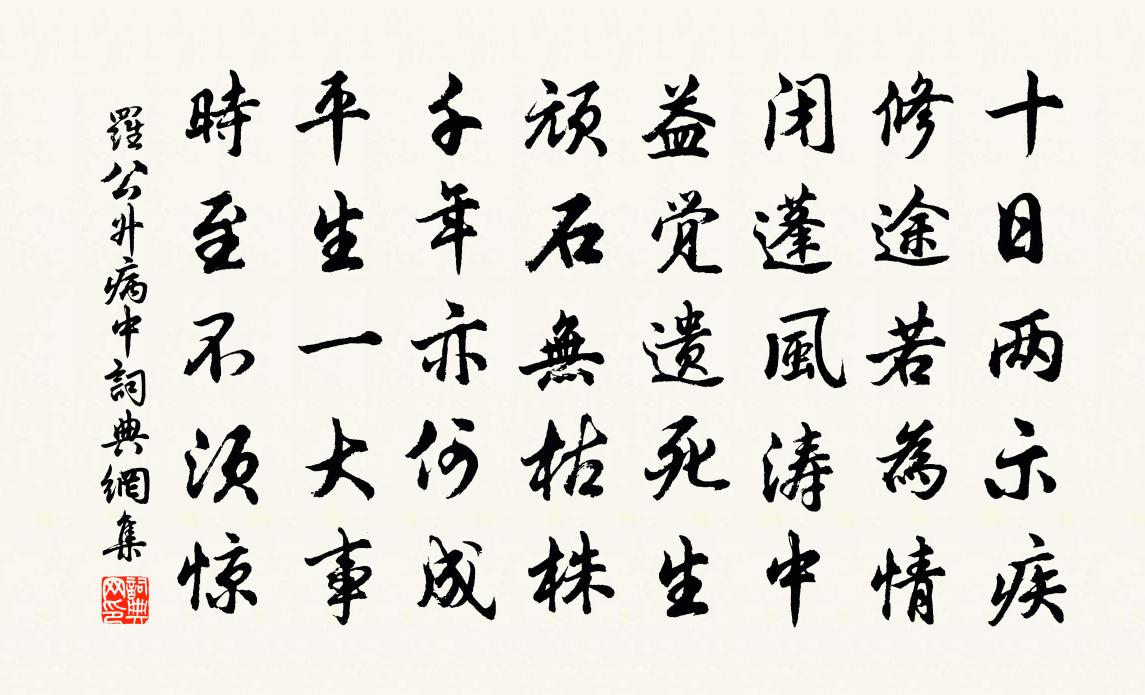 十日两示疾
修途若為情
闭蓬風濤中
益觉遗死生
顽石無枯株
千年亦何成
平生一大事
時至不须惊
羅公升病中詞典網集
詞典网印